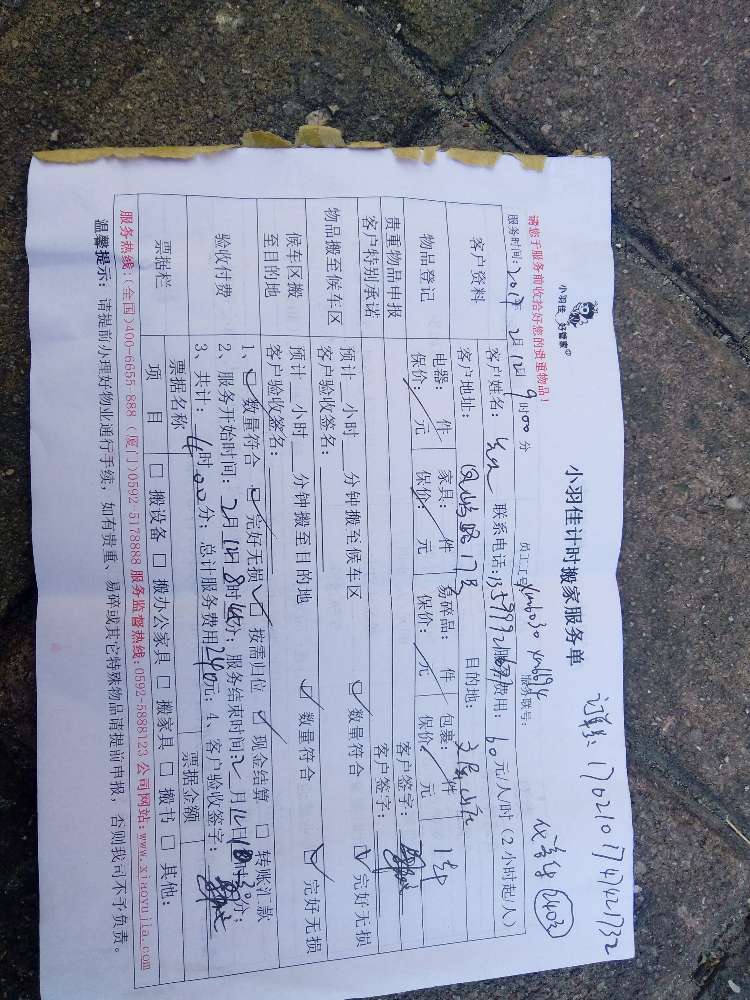 小羽佳 好管家
小羽佳计时搬家服务单
请您于服务前收拾好您的贵重物品！
服务时间：2017年 2月12日 9时00分 员工工号 服务账号：
客户资料 客户姓名： 联系电话： 服务费用：60元/人/时（2小时起/人）
客户地址： 17号 目的地：
物品登记 电器： 件 家具： 件 易碎品： 件 包裹： 件
保价： 元 保价： 元 保价： 元 保价： 元
贵重物品申报 客户签字：
客户特别承诺 客户签字：
物品搬至候车区 预计__小时__分钟搬至候车区 ☑数量符合 ☑完好无损
客户验收签名：
候车区搬至目的地 预计__小时__分钟搬至目的地 ☑数量符合 ☑完好无损
客户验收签名：
验收付费 1、☑数量符合 ☑完好无损 ☑按需归位 ☑现金结算 □转账汇款
2、服务开始时间：2月12日8时 分；服务结束时间：2月12日 时30分；
3、共计：4时00分；总计服务费用240元；4、客户验收签字：
票据栏 票据名称 票据金额
项目 □搬设备 □搬办公家具 □搬家具 □搬书 □其他：
服务热线：(全国)400-6655 888 (厦门)0592-5178888 服务监督热线：0592-5888123 公司网站：www.xiaoyujia.com
温馨提示：请提前办理好物业通行手续，如有贵重、易碎或其它特殊物品请提前申报，否则我司不予负责。